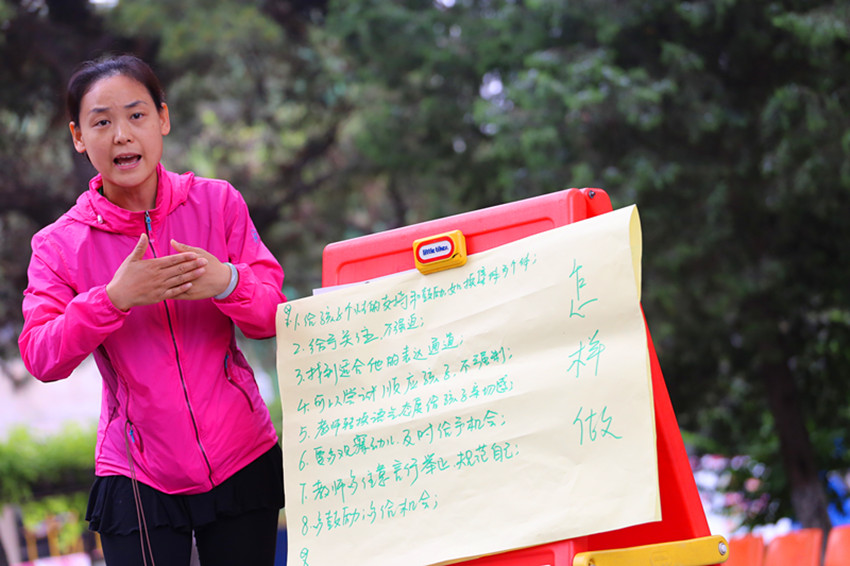 little tikes
1. 给孩子个性的支持和鼓励如按
2. 给予关注,不强迫;
3. 找到适合他的表达通道;
4. 可以尝试顺应孩子,不强制;
5. 老师轻按语言态度给孩子亲切感;
6. 要多观察幼儿及时给予机会;
7. 教师多注意言行举止 规范自己;
8. 多鼓励;多给机会;
怎样做